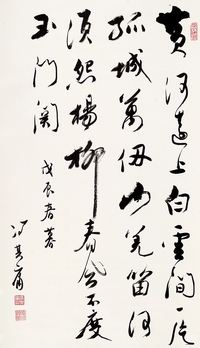 黄河遠上白雲間一片
孤城萬仞山羌笛何
須怨楊柳春風不度
玉門關
戊辰春暮
馮其庸